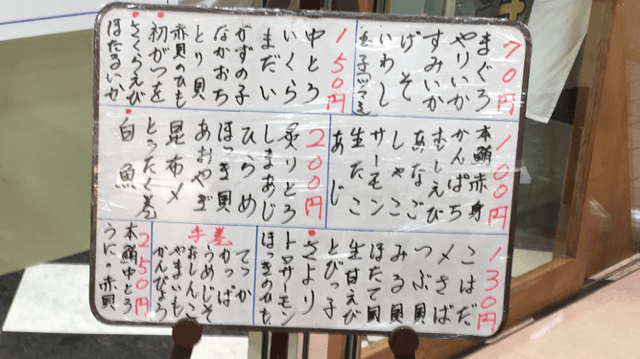 70円
まぐろ
やりいか
すみいか
げそ
いわし
玉子
150円
中とろ
いくら
まだい
かずの子
ながおち
とり貝
赤貝のひも
初がつを
さくらえび
ほたるいか
100円
本鮪赤身
かんぱち
むしえび
あなご
しゃこ
サーモン
生たこ
あじ
200円
炙りとろ
しまあじ
ひらめ
ほっき貝
あおやぎ
昆布〆
とったく巻
白魚
130円
こはだ
〆さば
つぶ貝
みる貝
ほたて貝
生甘えび
とびっ子
さより
トロサーモン
ほっきのひも
手巻
てっか
かっぱ
うめじそ
おしんこ
やまいも
かんぴょう
250円
本鮪中とろ
うに・赤貝